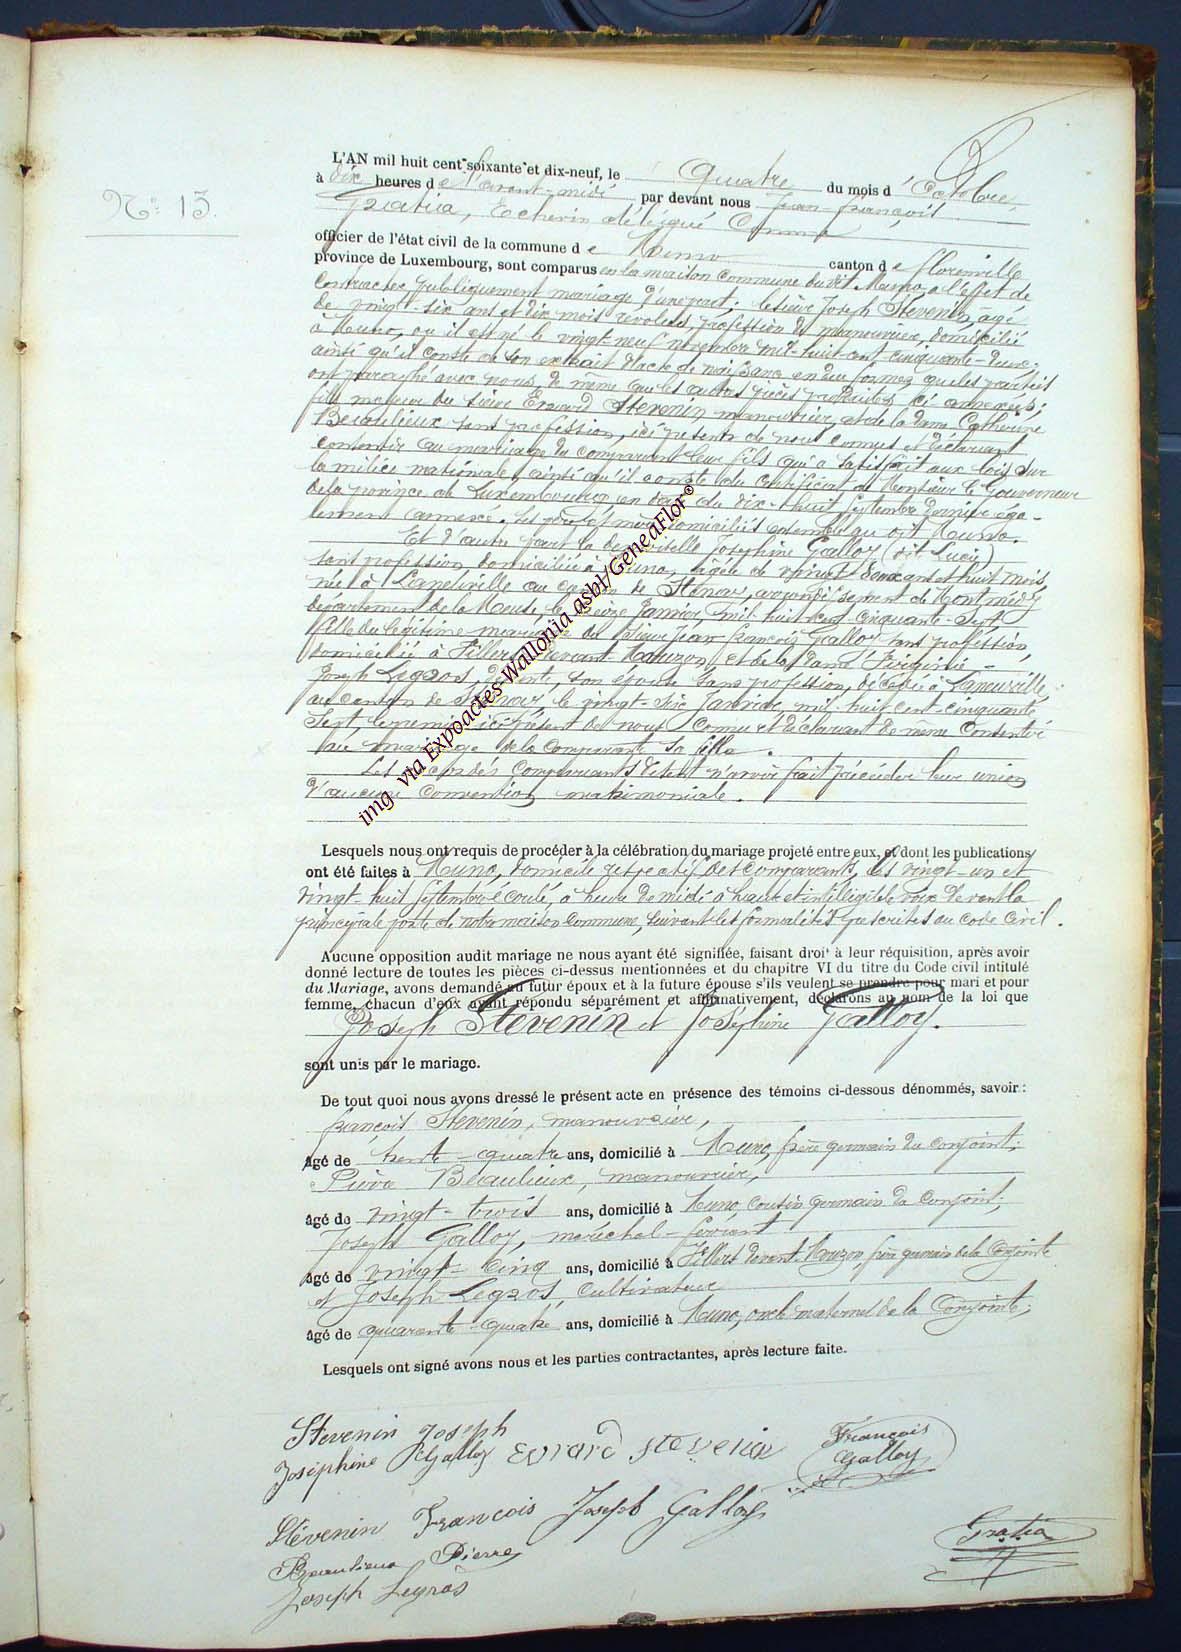 N° 13.
L'AN mil huit cent soixante et dix-neuf, le quatre du mois d'octobre,
à dix heures de l'avant-midi par devant nous Jean-françois
Gratia, Echevin délégué Comme
officier de l'état civil de la commune de Muno canton de florenville
province de Luxembourg, sont comparus en la maison Commune du dit Muno, à l'effet de
contracter publiquement mariage, d'une part; le sieur Joseph Stévenin, âgé
de vingt-six ans et dix mois révolus, profession de manouvrier, domicilié
à Muno, où il est né le vingt-neuf novembre mil-huit-cent-cinquante-deux;
ainsi qu'il conste de son extrait d'acte de naissance en due forme, que les parties
ont paraphé avec nous, de même que les autres pièces produites ci-annexées;
fils majeur du sieur Evrard Stévenin, manouvrier, et de la dame Catherine
Beaulieux sans profession, ici présents de nous connus et déclarant
consentir au mariage du comparant leur fils qui a satisfait aux lois sur
la milice nationale, ainsi qu'il conste du certificat de Monsieur le Gouverneur
de la province de Luxembourg en date du dix-huit septembre dernier éga-
lement annexé. Les père et mère domiciliés ensemble au dit Muno.
Et d'autre part la demoiselle Joséphine Galloy (dit Lucie)
sans profession, domiciliée à Muno, âgée de vingt-deux ans et huit mois,
née à Laneuville au canton de Stenay, arrondissement de Montmédy
département de la Meuse, le seize Janvier, mil-huit-cent-cinquante-sept
fille du légitime mariage du sieur Jean françois Galloy, sans profession,
domicilié à Villers-devant-Mouzon, et de la dame Virginie-
Joseph Legros, défunte, son épouse sans profession, décédée à Laneuville,
au canton de Stenay, le vingt-six Janvier, mil-huit-cent-cinquante
Sept, le premier ici présent de nous connu et déclarant de même consentir
au mariage de la comparante sa fille.
Les accordés comparants disent n'avoir fait précéder leur union
d'aucune convention matrimoniale.
Lesquels nous ont requis de procéder à la célébration du mariage projeté entre eux, et dont les publications
ont été faites à Muno, domicile respectif des comparants, les vingt-un et
vingt-huit septembre écoulé, à heure de midi à haute et intelligible voix devant la
principale porte de notre maison Commune, suivant les formalités prescrites au Code Civil.
Aucune opposition audit mariage ne nous ayant été signifiée, faisant droit à leur réquisition, après avoir
donné lecture de toutes les pièces ci-dessus mentionnées et du chapitre VI du titre du Code civil intitulé
du Mariage, avons demandé au futur époux et à la future épouse s'ils veulent se prendre pour mari et pour
femme, chacun d'eux ayant répondu séparément et affirmativement, déclarons au nom de la loi que
Joseph Stévenin et Joséphine Galloy.
sont unis par le mariage.
De tout quoi nous avons dressé le présent acte en présence des témoins ci-dessous dénommés, savoir:
françois Stévenin, manouvrier,
âgé de trente-quatre ans, domicilié à Muno, frère germain du conjoint;
Pierre Beaulieux, manouvrier,
âgé de vingt-trois ans, domicilié à Muno, cousin germain du conjoint;
Joseph Galloy, maréchal-ferrant
âgé de vingt-cinq ans, domicilié à Villers devant Mouzon, frère germain de la Conjointe
et Joseph Legros, cultivateur
âgé de quarante-quatre ans, domicilié à Muno, oncle maternel de la Conjointe;
Lesquels ont signé avons nous et les parties contractantes, après lecture faite.
Stevenin Joseph
Joséphine Galloy Evrard Stevenin François Galloy
Stévenin François Joseph Galloy
Beaulieux Pierre Gratia
Joseph Legros
img via Expoactes-Wallonia asbl/GeneaFlor©